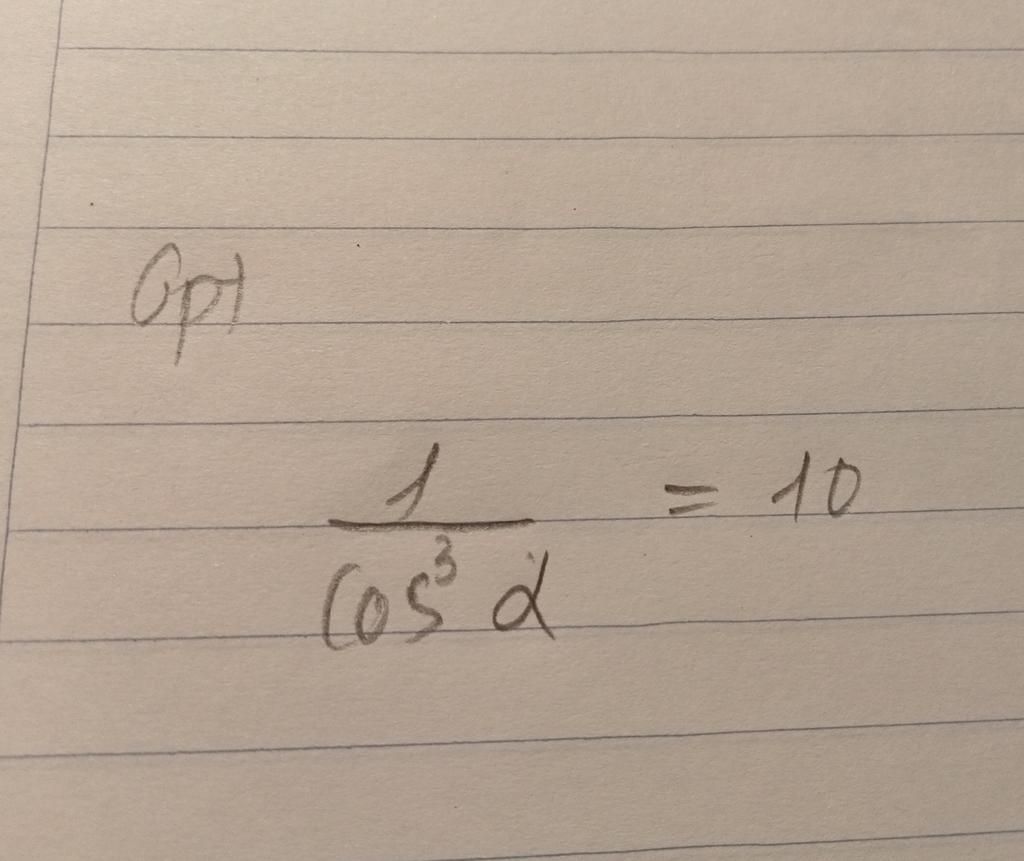 Gpt
1/cos³ α = 10